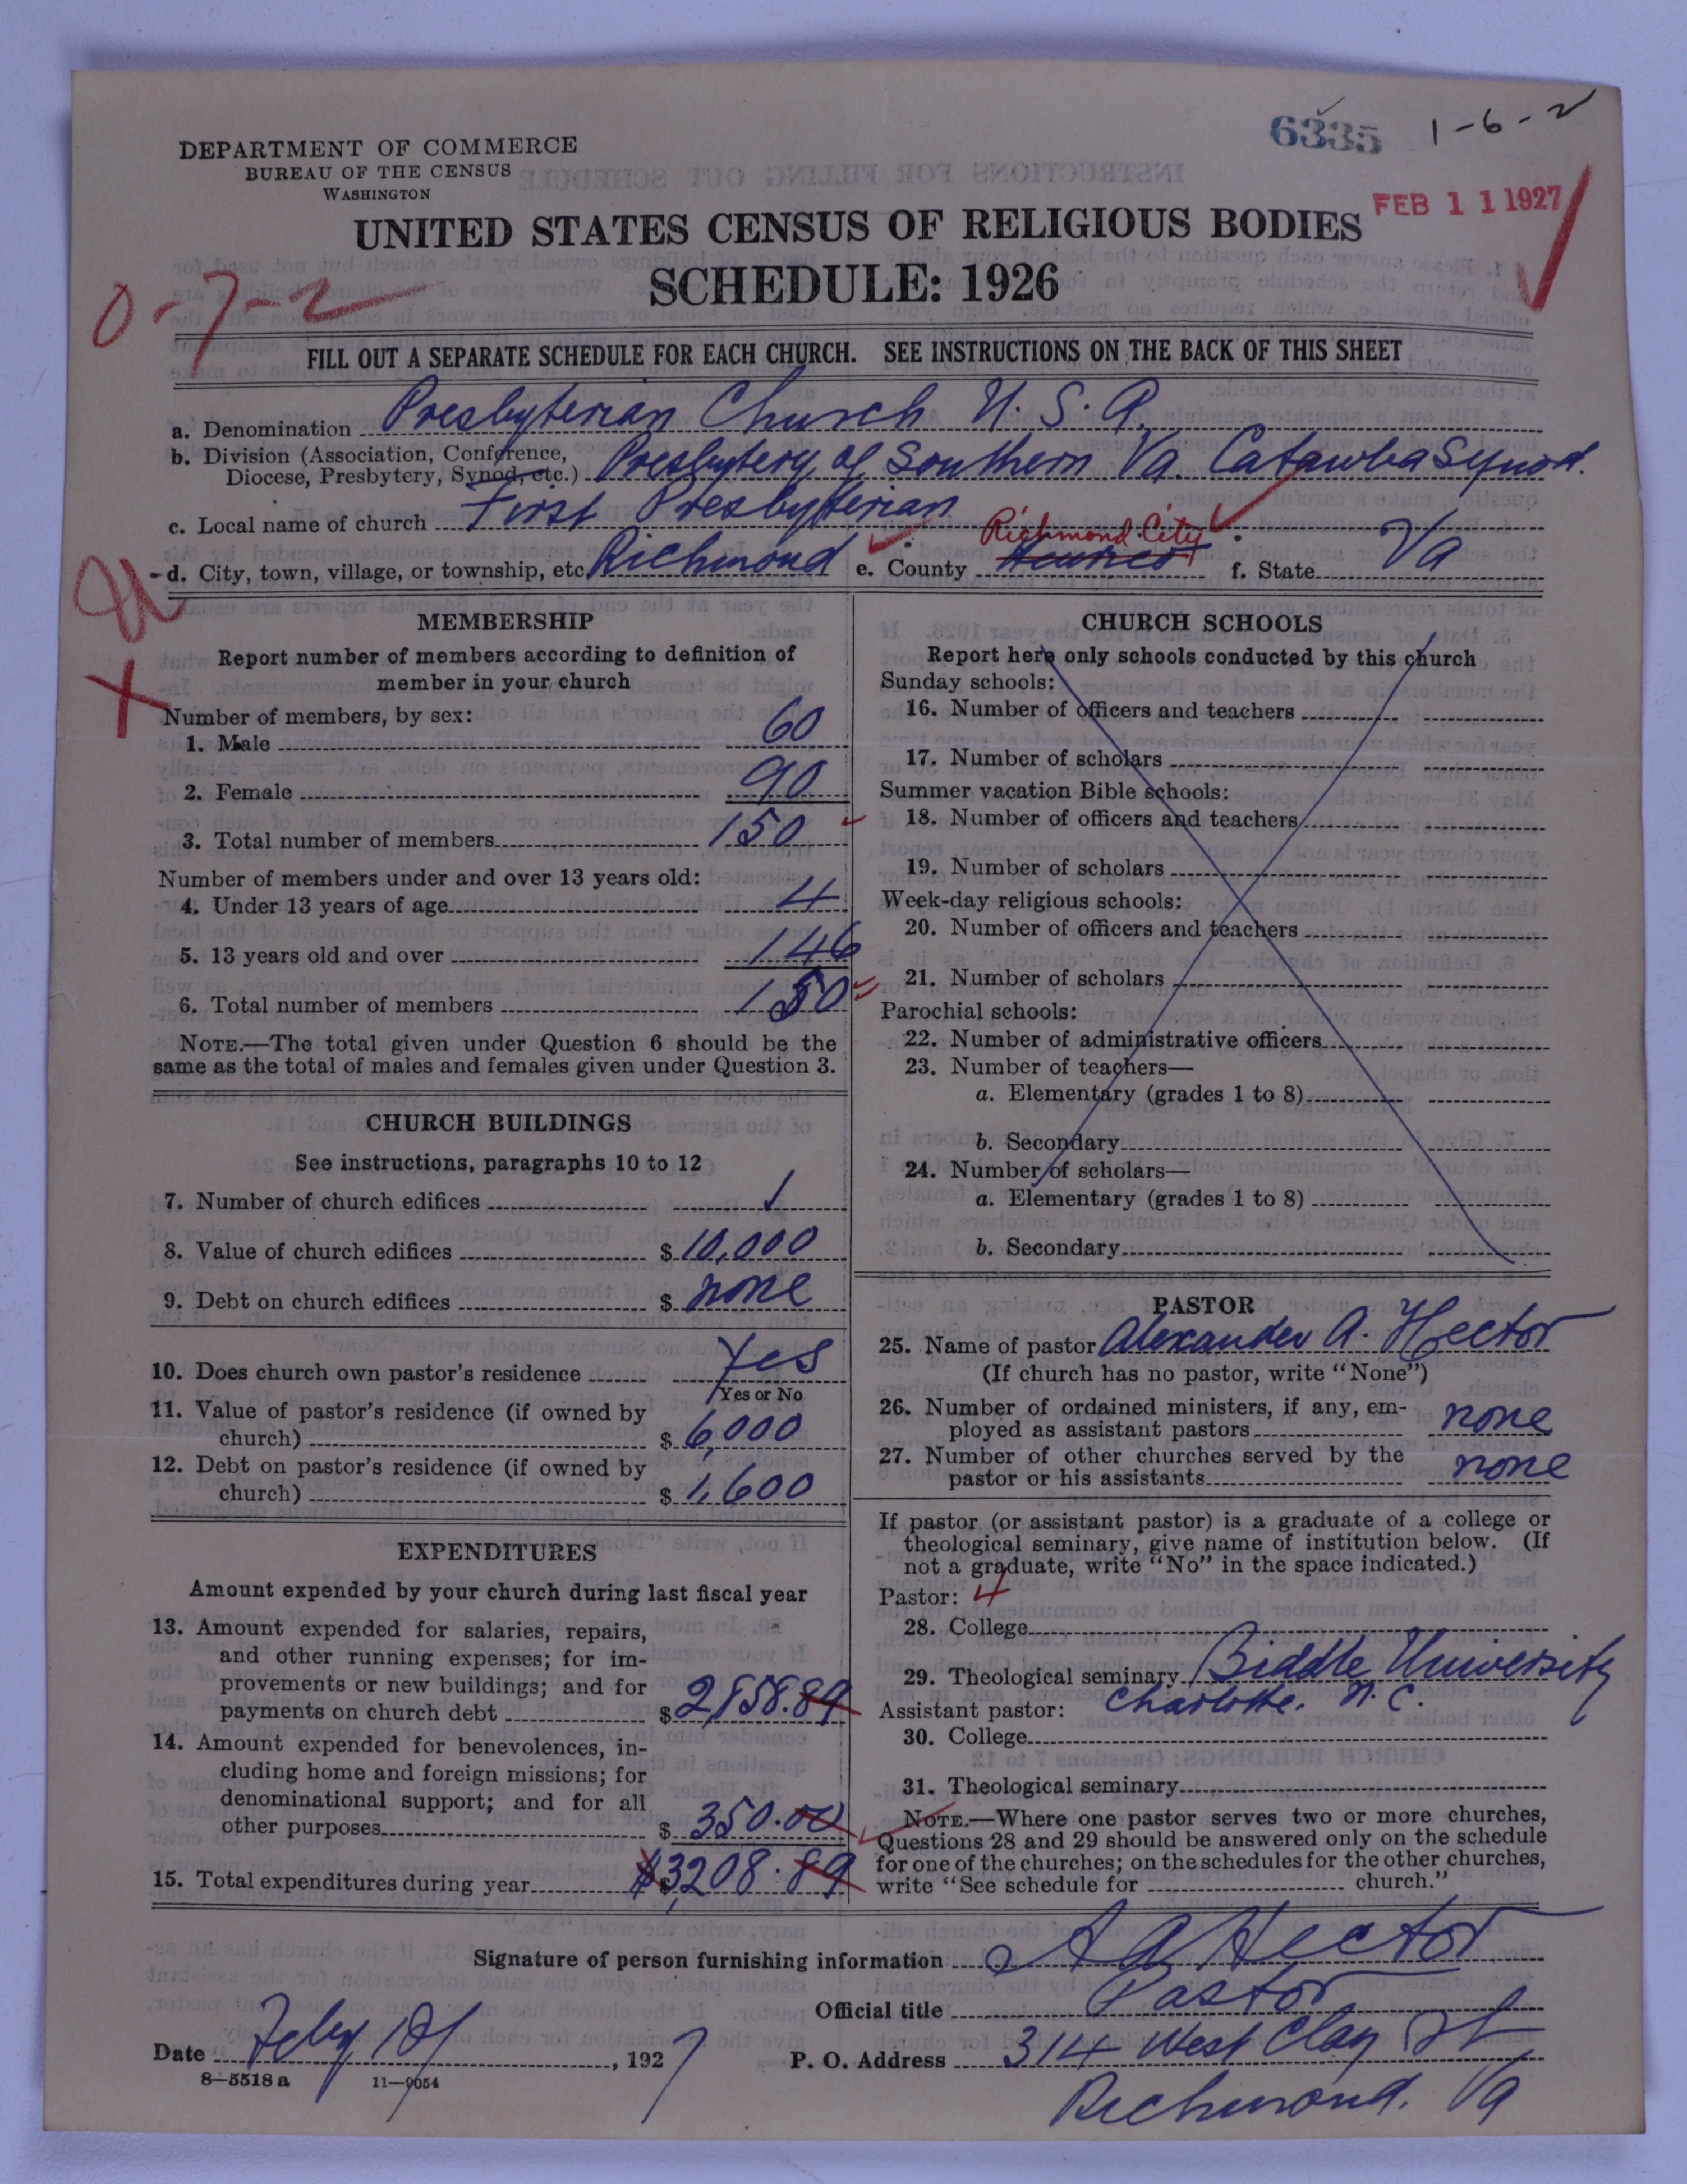 6335 1-6-2
DEPARTMENT OF COMMERCE
BUREAU OF THE CENSUS
WASHINGTON
FEB 11 1927
UNITED STATES CENSUS OF RELIGIOUS BODIES
SCHEDULE: 1926
0-7-2
FILL OUT A SEPARATE SCHEDULE FOR EACH CHURCH. SEE INSTRUCTIONS ON THE BACK OF THIS SHEET
a. Denomination Presbyterian Church U. S. A.
b. Division (Association, Conference,
Diocese, Presbytery, Synod, etc.) Presbytery of Southern Va. Catawba Synod.
c. Local name of church First Presbyterian
Richmond City
d. City, town, village, or township, etc. Richmond e. County Henrico f. State Va
MEMBERSHIP
Report number of members according to definition of
member in your church
Number of members, by sex:
1. Male 60
2. Female 90
3. Total number of members 150
Number of members under and over 13 years old:
4. Under 13 years of age 4
5. 13 years old and over 146
6. Total number of members 150
NOTE.—The total given under Question 6 should be the
same as the total of males and females given under Question 3.
CHURCH BUILDINGS
See instructions, paragraphs 10 to 12
7. Number of church edifices 1
8. Value of church edifices $ 10,000
9. Debt on church edifices $ none
10. Does church own pastor's residence Yes
Yes or No
11. Value of pastor's residence (if owned by
church) $ 6,000
12. Debt on pastor's residence (if owned by
church) $ 1,600
EXPENDITURES
Amount expended by your church during last fiscal year
13. Amount expended for salaries, repairs,
and other running expenses; for im-
provements or new buildings; and for
payments on church debt $ 2,858.89
14. Amount expended for benevolences, in-
cluding home and foreign missions; for
denominational support; and for all
other purposes $ 350.00
15. Total expenditures during year $ $3,208.89
CHURCH SCHOOLS
Report here only schools conducted by this church
Sunday schools:
16. Number of officers and teachers
17. Number of scholars
Summer vacation Bible schools:
18. Number of officers and teachers
19. Number of scholars
Week-day religious schools:
20. Number of officers and teachers
21. Number of scholars
Parochial schools:
22. Number of administrative officers
23. Number of teachers—
a. Elementary (grades 1 to 8)
b. Secondary
24. Number of scholars—
a. Elementary (grades 1 to 8)
b. Secondary
PASTOR
25. Name of pastor Alexander A. Hector
(If church has no pastor, write "None")
26. Number of ordained ministers, if any, em-
ployed as assistant pastors none
27. Number of other churches served by the
pastor or his assistants none
If pastor (or assistant pastor) is a graduate of a college or
theological seminary, give name of institution below. (If
not a graduate, write "No" in the space indicated.)
Pastor: 4
28. College
29. Theological seminary Biddle University
Assistant pastor: Charlotte. N. C.
30. College
31. Theological seminary
NOTE.—Where one pastor serves two or more churches,
Questions 28 and 29 should be answered only on the schedule
for one of the churches; on the schedules for the other churches,
write "See schedule for church."
Signature of person furnishing information A A Hector
Official title Pastor
Date Feby 1st, 1927 P. O. Address 314 West Clay St
8—5518 a 11—9054
Richmond. Va